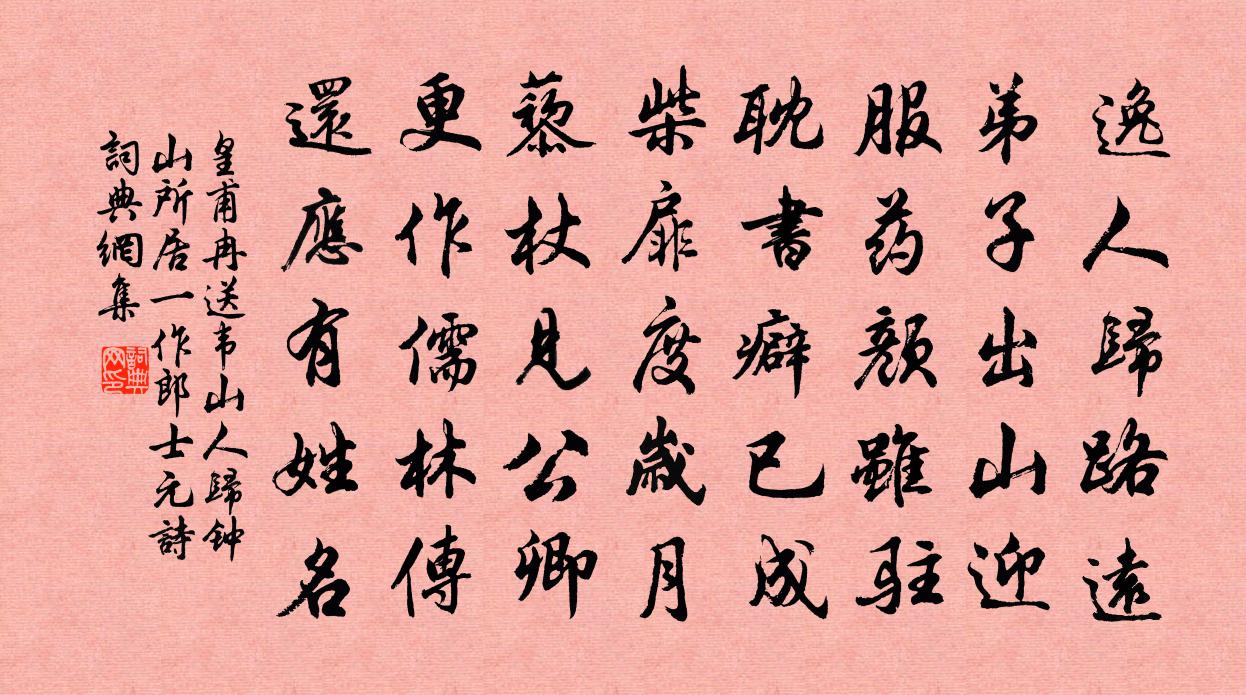 逸人歸路遠
弟子出山迎
服药顏雖駐
耽書癖已成
柴扉度歲月
藜杖見公卿
更作儒林傳
還應有姓名
皇甫冉送韦山人歸钟
山所居一作郎士元詩
詞典網集
詞典網印